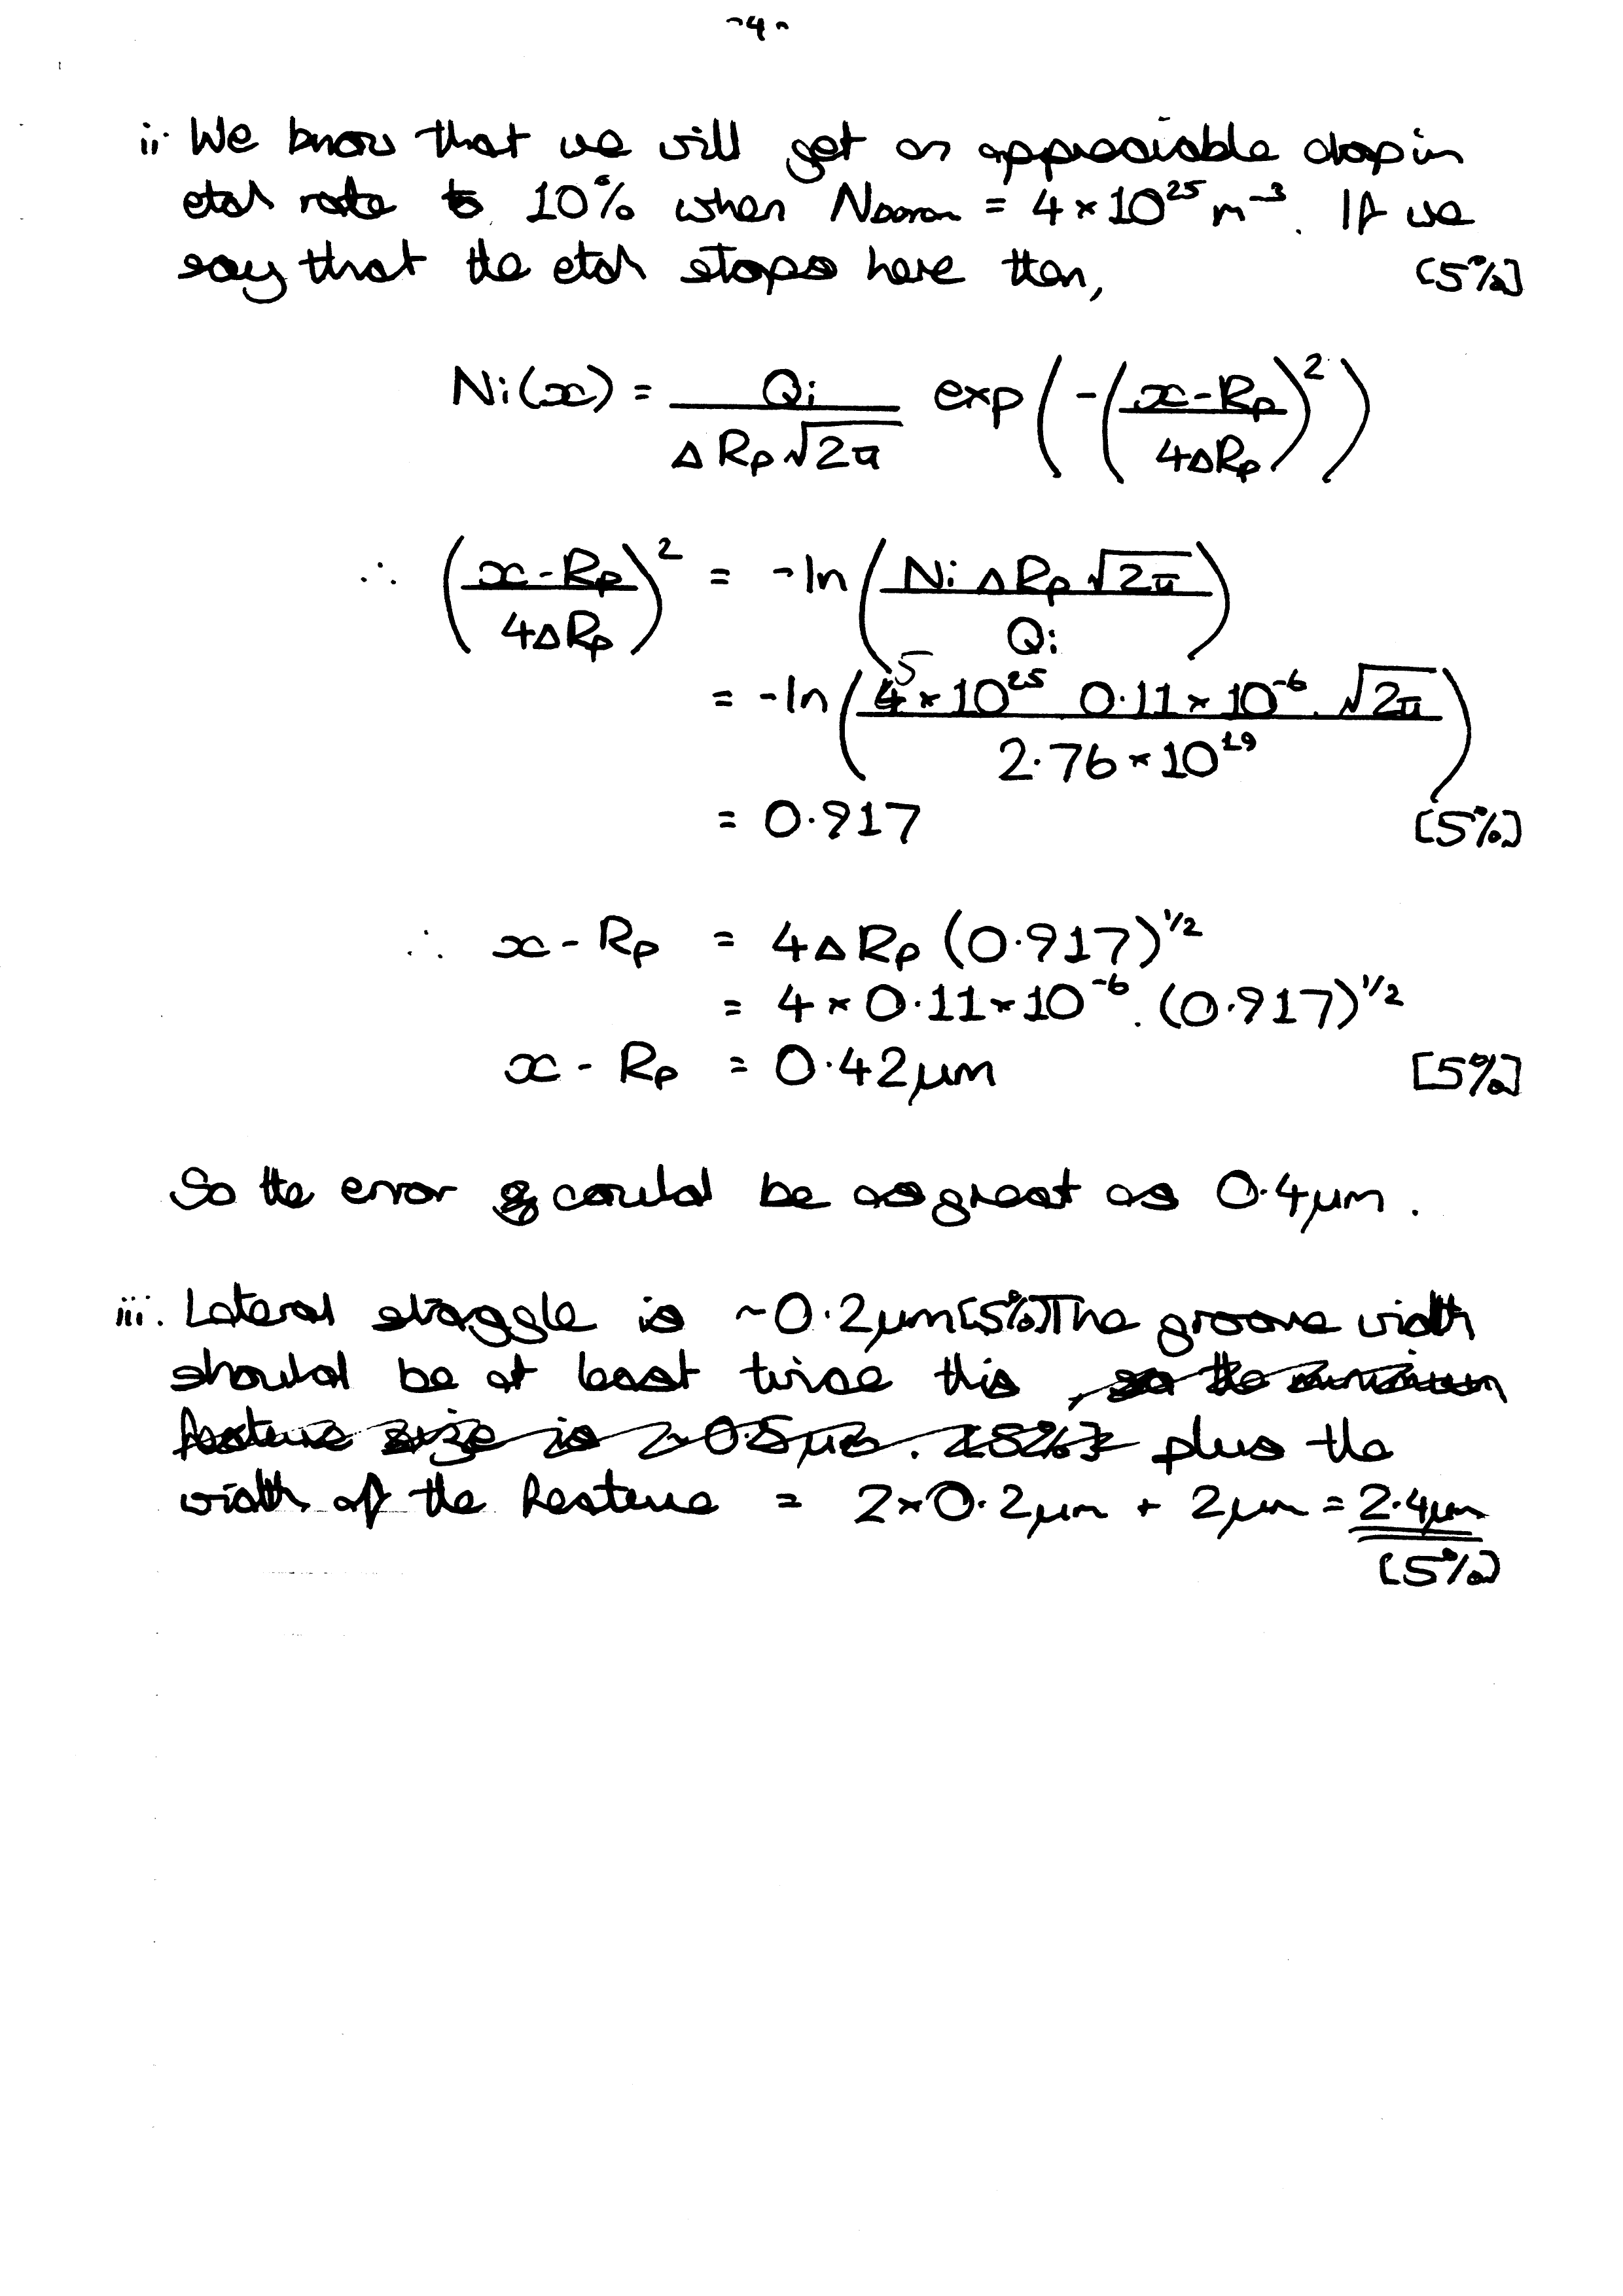 ~4~
ii. We know that we will get an appreciable drop in
etch rate to 10% when N_boron = 4 × 10²⁵ m⁻³. If we
say that the etch stops here then, [5%]
Ni(x) = Qi / (ΔRp√2π) exp(-((x-Rp)/(4ΔRp))²)
∴ ((x-Rp)/(4ΔRp))² = -ln(Ni ΔRp √2π / Qi)
= -ln(5×10²⁵ 0.11×10⁻⁶.√2π / 2.76×10¹⁹)
= 0.917 [5%]
∴ x-Rp = 4ΔRp (0.917)^1/2
= 4×0.11×10⁻⁶.(0.917)^1/2
x-Rp = 0.42μm [5%]
So the error could be as great as 0.4μm.
iii. Lateral straggle is ~0.2μm [5%] The groove width
should be at least twice this , so the minimum
feature size is ~0.5μm. [5%] plus the
width of the feature = 2×0.2μm + 2μm = 2.4μm
[5%]